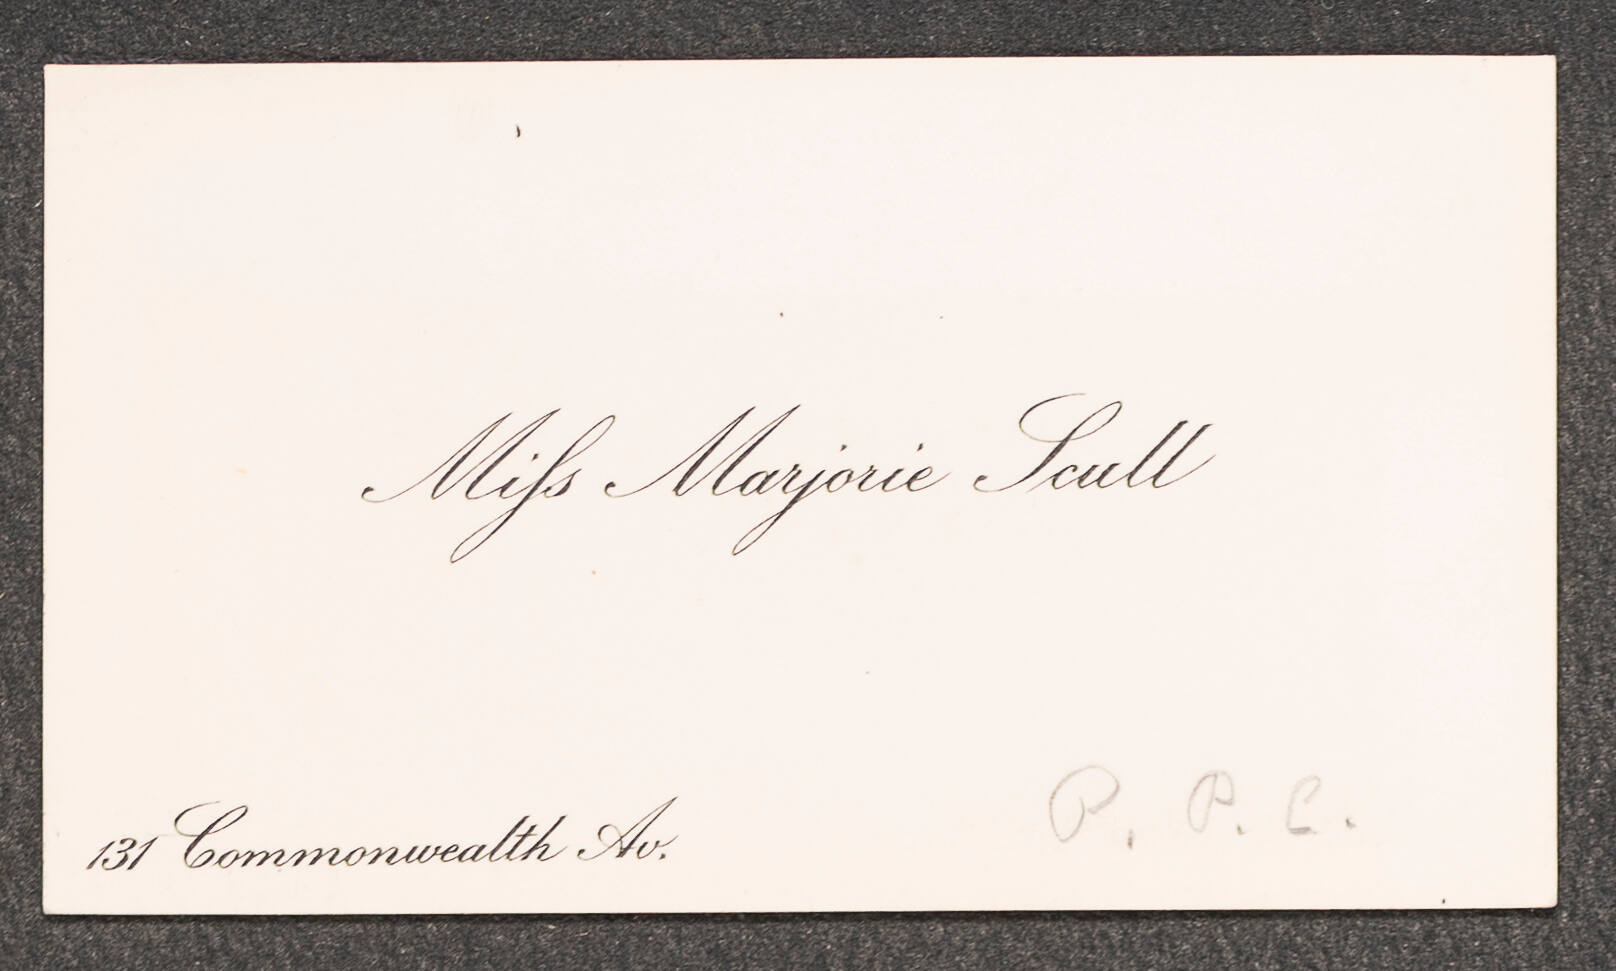 Miſs Marjorie Scull
131 Commonwealth Av.
P. P. C.